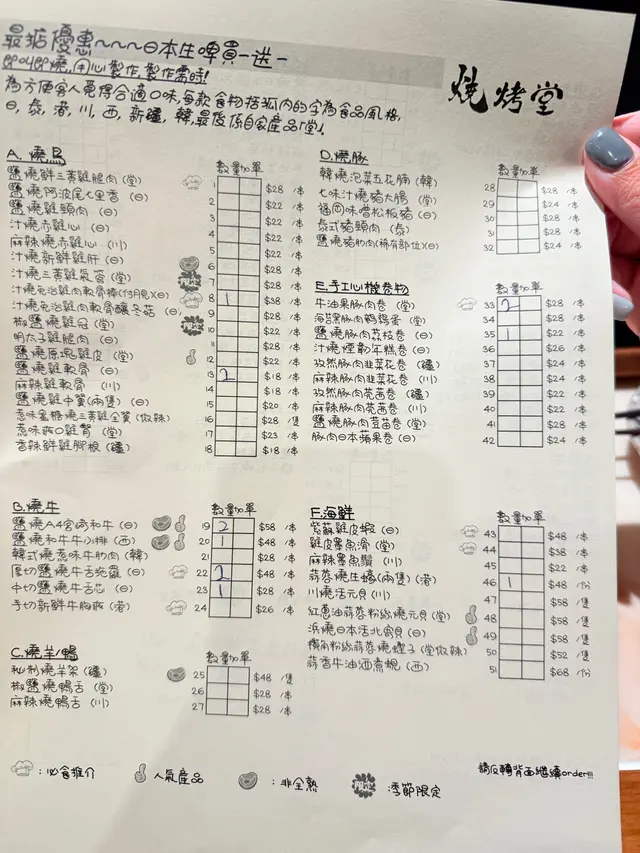 最掂優惠~~~日本生啤買一送一
即叫即燒,用心製作,製作需時!
為方便客人覓得合適口味,每款食物括弧內的字為食品風格,
日,泰,港,川,西,新疆,韓,最後係自家產品「堂」
燒烤堂
A. 燒鳥
數量 加單
鹽燒鮮三黃雞腿肉 (堂) 1 $28 /本
鹽燒阿波尾七里香 (日) 2 $28 /本
鹽燒雞頸肉 (日) 3 $22 /本
汁燒赤雞心 (日) 4 $22 /本
麻辣燒赤雞心 (川) 5 $22 /本
汁燒新鮮雞肝 (日) 6 $22 /本
汁燒三黃雞氣管 (堂) 7 $28 /本
汁燒免治雞肉軟骨棒(付月見)(日) 8 1 $38 /本
汁燒免治雞肉軟骨釀冬菇 (日) 9 $28 /本
椒鹽燒雞冠 (堂) 10 $22 /本
明太子雞腿肉 (日) 11 $28 /本
鹽燒原塊雞皮 (堂) 12 $22 /本
鹽燒雞軟骨 (日) 13 2 $18 /本
麻辣雞軟骨 (川) 14 $18 /本
鹽燒雞中翼(兩隻) (日) 15 $20 /本
惹味蜜糖燒三黃雞全翼 (微辣) 16 $28 /隻
惹味雞腎 (堂) 17 $23 /本
香辣鮮雞腳板 (疆) 18 $18 /本
B. 燒牛
數量 加單
鹽燒A4宮崎和牛 (日) 19 2 $58 /本
鹽燒和牛牛小排 (西) 20 1 $48 /本
韓式燒惹味牛肋肉 (韓) 21 $28 /本
厚切鹽燒牛舌 (日) 22 2 $48 /本
中切鹽燒牛舌芯 (日) 23 1 $28 /本
手切新鮮牛胸 (港) 24 $26 /本
C. 燒羊/鴨
數量 加單
秘制燒羊架 (疆) 25 $48 /隻
椒鹽燒鴨舌 (堂) 26 $28 /本
麻辣燒鴨舌 (川) 27 $28 /本
D. 燒豚
數量 加單
韓燒泡菜五花腩 (韓) 28 $28 /本
七味汁燒豬大腸 (堂) 29 $24 /本
福岡味噌松板豬 (日) 30 $28 /本
泰式豬頸肉 (泰) 31 $28 /本
鹽燒豬肋肉(稀有部位)(日) 32 $24 /本
E. 手工心機卷物
數量 加單
牛油果豚肉卷 (堂) 33 2 $28 /本
海苔黑豚肉鵪鶉蛋 (堂) 34 $28 /本
鹽燒豚肉荔枝卷 (日) 35 1 $22 /本
汁燒煙韌年糕卷 (日) 36 $26 /本
孜然豚肉韭菜花卷 (疆) 37 $24 /本
麻辣豚肉韭菜花卷 (川) 38 $24 /本
孜然豚肉芫茜卷 (疆) 39 $24 /本
麻辣豚肉芫茜卷 (川) 40 $22 /本
鹽燒豚肉荳苗卷 (堂) 41 $28 /本
豚肉日本蘋果卷 (日) 42 $24 /本
F. 海鮮
數量 加單
紫蘇雞皮蝦 (日) 43 $48 /本
雞皮墨魚滑 (堂) 44 $38 /本
麻辣墨魚鬚 (川) 45 $22 /本
蒜蓉燒生蠔(兩隻) (港) 46 1 $48 /份
川燒活元貝 (川) 47 $58 /隻
紅蔥油蒜蓉粉絲燒元貝 (堂) 48 $58 /隻
浜燒日本活北寄貝 (日) 49 $58 /隻
椒角粉絲蒜蓉燒蟶子 (堂微辣) 50 $52 /隻
蒜香牛油酒煮蜆 (西) 51 $68 /份
:必食推介
:人氣產品
:非全熟
限定 :季節限定
請反轉背面繼續order!!!